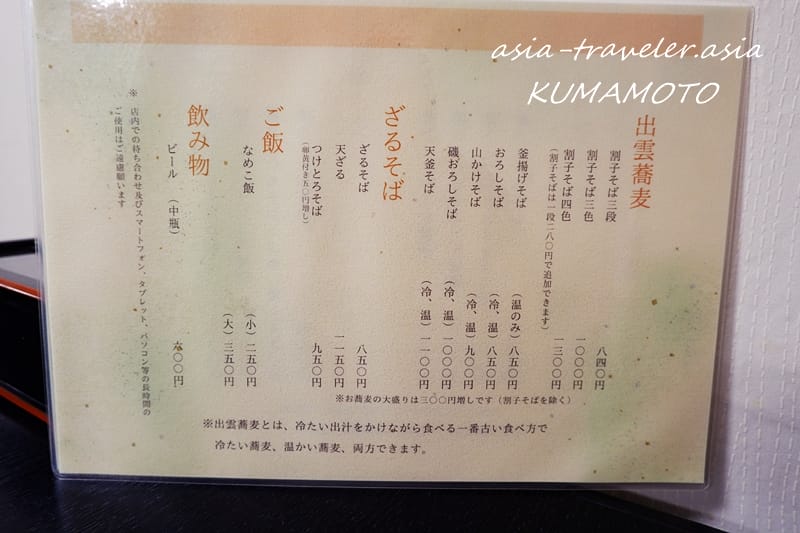 asia-traveler.asia
KUMAMOTO
出雲蕎麦
割子そば三段 八四〇円
割子そば三色 一〇〇〇円
割子そば四色 一三〇〇円
（割子そばは一段二八〇円で追加できます）
釜揚げそば （温のみ）八五〇円
おろしそば （冷、温）八五〇円
山かけそば （冷、温）九〇〇円
磯おろしそば （冷、温）一〇〇〇円
天釜そば （冷、温）一一〇〇円
※お蕎麦の大盛りは三〇〇円増しです（割子そばを除く）
ざるそば
ざるそば 八五〇円
天ざる 一一五〇円
つけとろそば 九五〇円
（卵黄付き五〇円増し）
ご飯
なめこ飯 （小）二五〇円
（大）三五〇円
飲み物
ビール （中瓶） 六〇〇円
※ 店内での待ち合わせ及びスマートフォン、タブレット、パソコン等の長時間の
ご使用はご遠慮願います
※出雲蕎麦とは、冷たい出汁をかけながら食べる一番古い食べ方で
冷たい蕎麦、温かい蕎麦、両方できます。